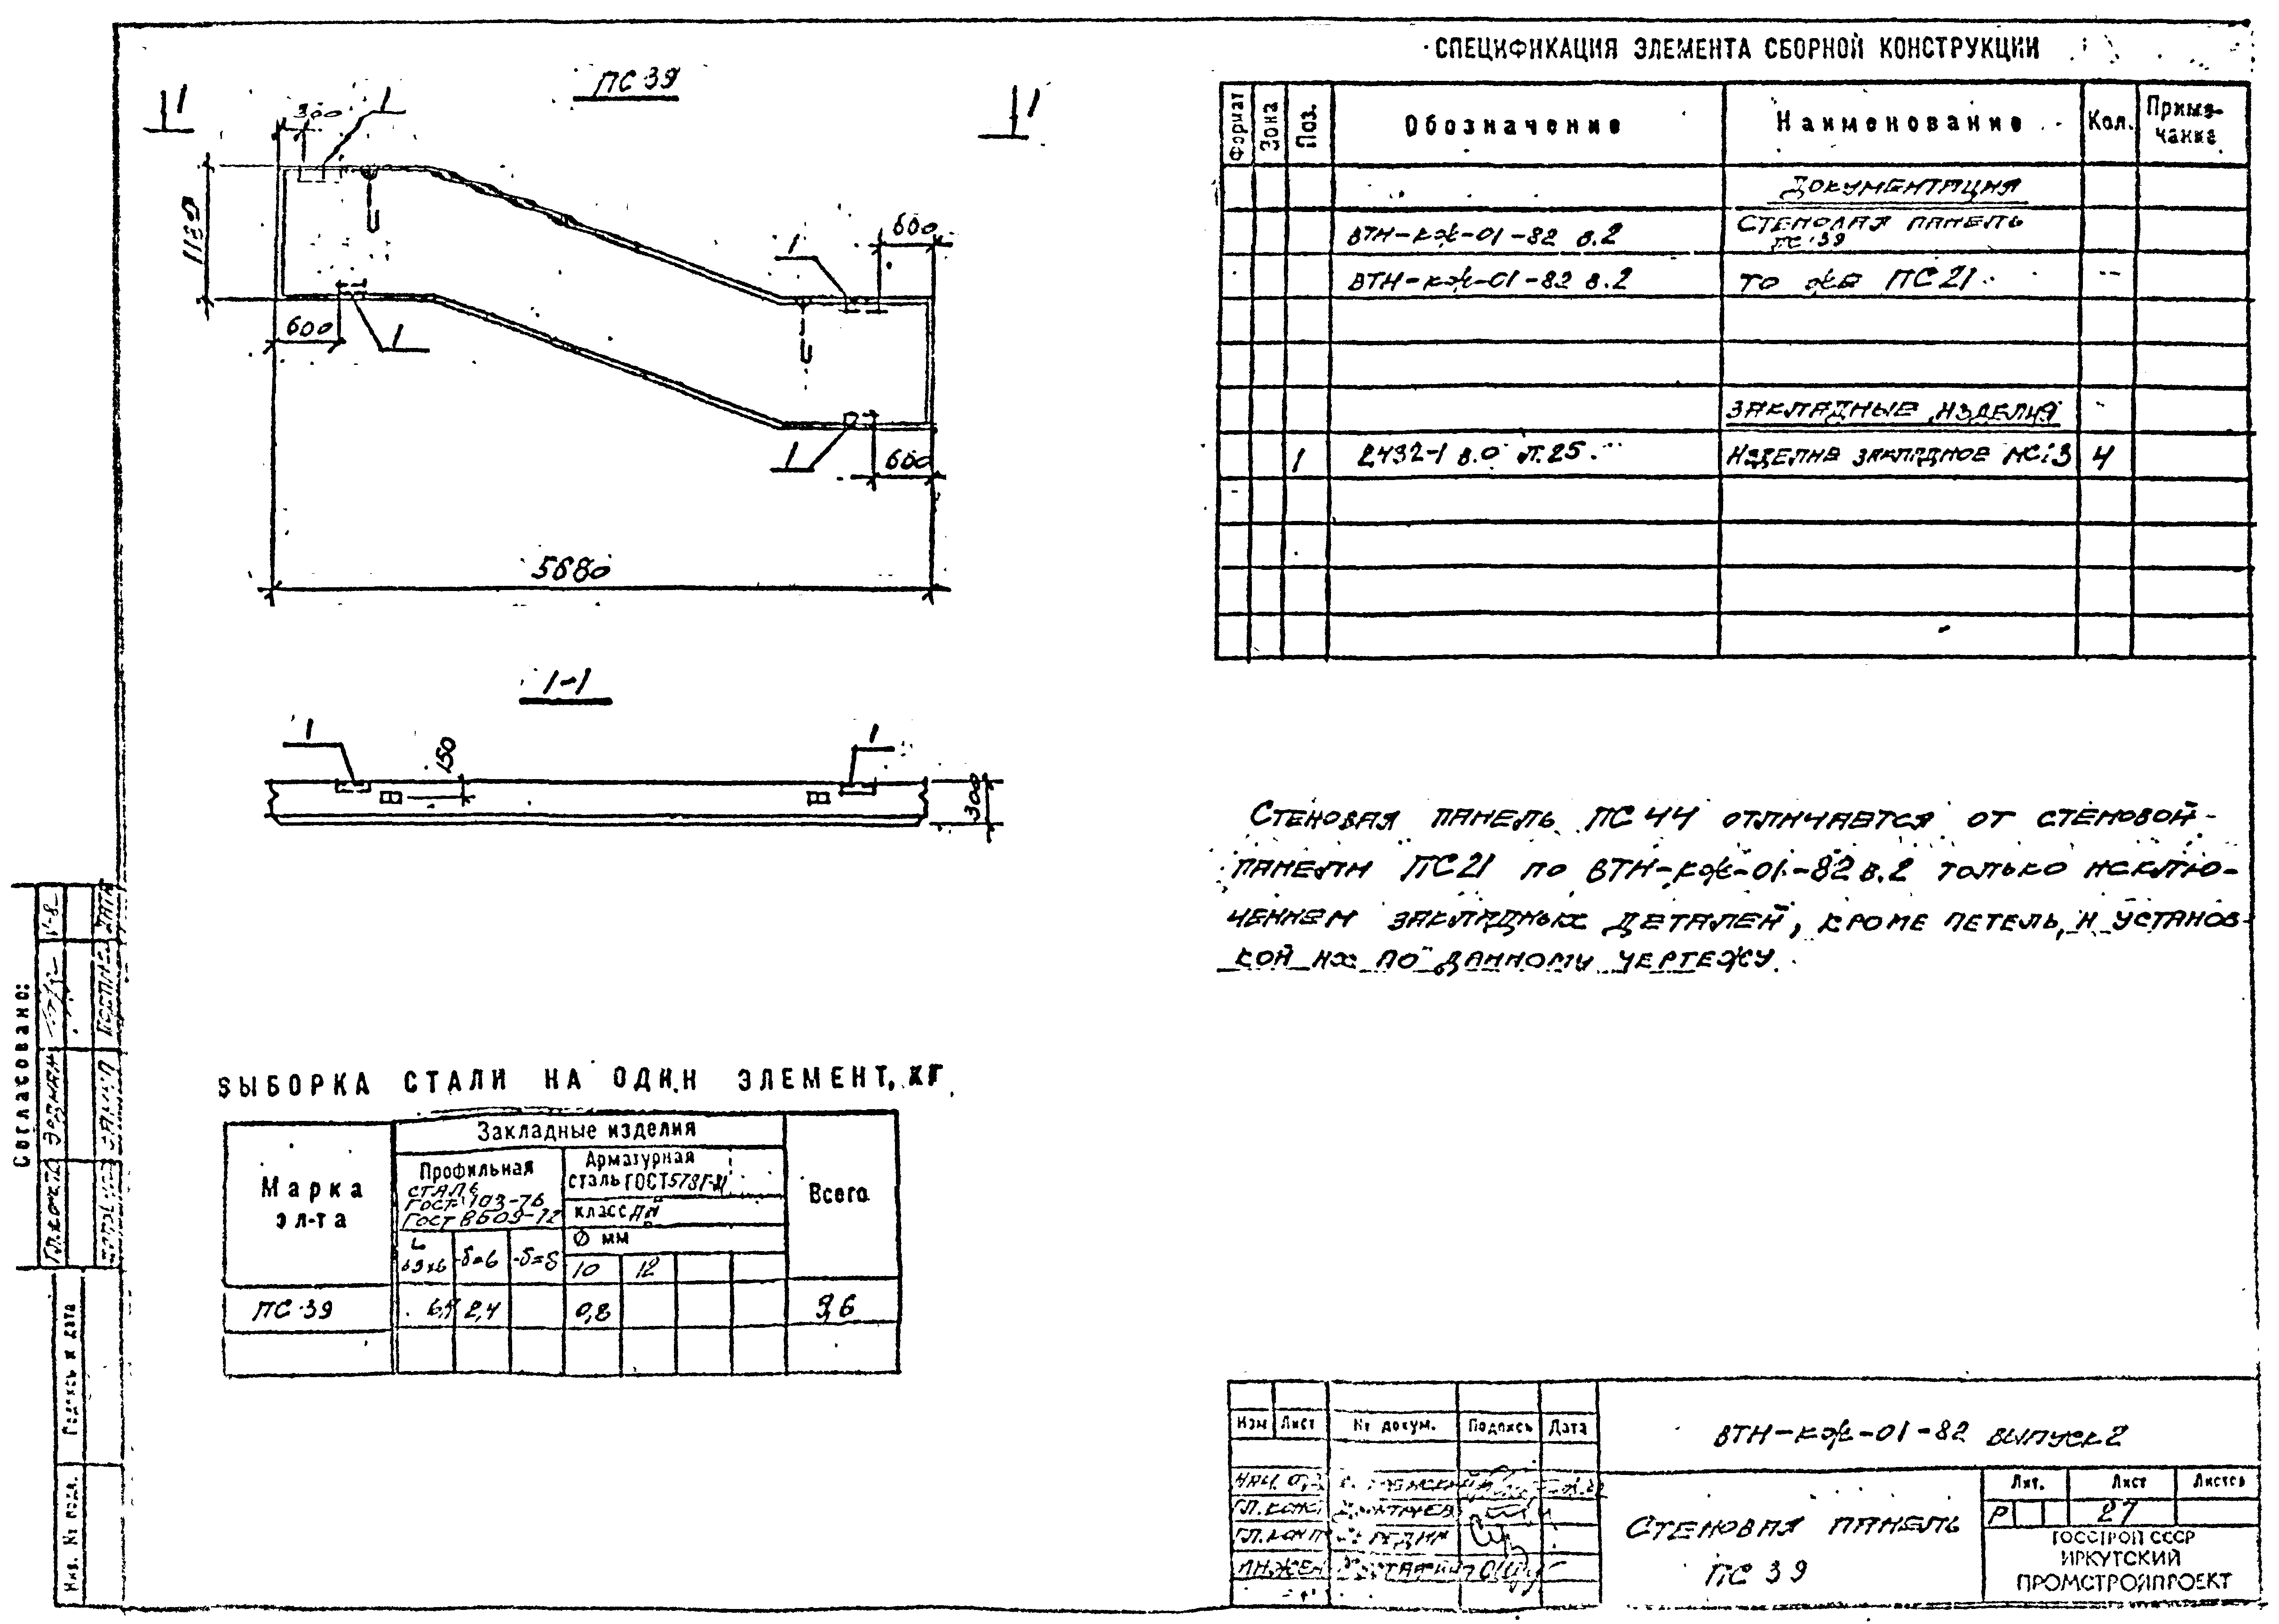 ПС 39
1
1
300
1
1180
600
1
600
1
1
600
5680
1-1
1
1
150
300
СПЕЦИФИКАЦИЯ ЭЛЕМЕНТА СБОРНОЙ КОНСТРУКЦИИ
Формат Зона Поз. Обозначение Наименование Кол. Приме-
чание
Документация
ВТН-КЖ-01-82 в.2 Стеновая панель
ПС 39
ВТН-КЖ-01-82 в.2 То же ПС 21
Закладные изделия
1 2.432-1 в.0 л.25 Изделие закладное МС13 4
Стеновая панель ПС 44 отличается от стеновой
панели ПС21 по ВТН-КЖ-01-82 в.2 только исклю-
чением закладных деталей, кроме петель, и установ-
кой их по данному чертежу.
ВЫБОРКА СТАЛИ НА ОДИН ЭЛЕМЕНТ, КГ
Марка
эл-та
Закладные изделия
Всего
Профильная
сталь
ГОСТ 103-76
ГОСТ 8509-72
Арматурная
сталь ГОСТ 5781-81
класс
Ø мм
-δ=6 -δ=8 10 12
ПС 39 2,4 0,8 9,6
Согласовано:
Подпись и дата
Инв. № подл.
Изм Лист № докум. Подпись Дата
ВТН-КЖ-01-82 выпуск 2
Нач. о
Гл. конс
Гл. кон п
Инжен
Стеновая панель
ПС 39
Лит. Лист Листов
Р 27
ГОССТРОЙ СССР
ИРКУТСКИЙ
ПРОМСТРОЙПРОЕКТ